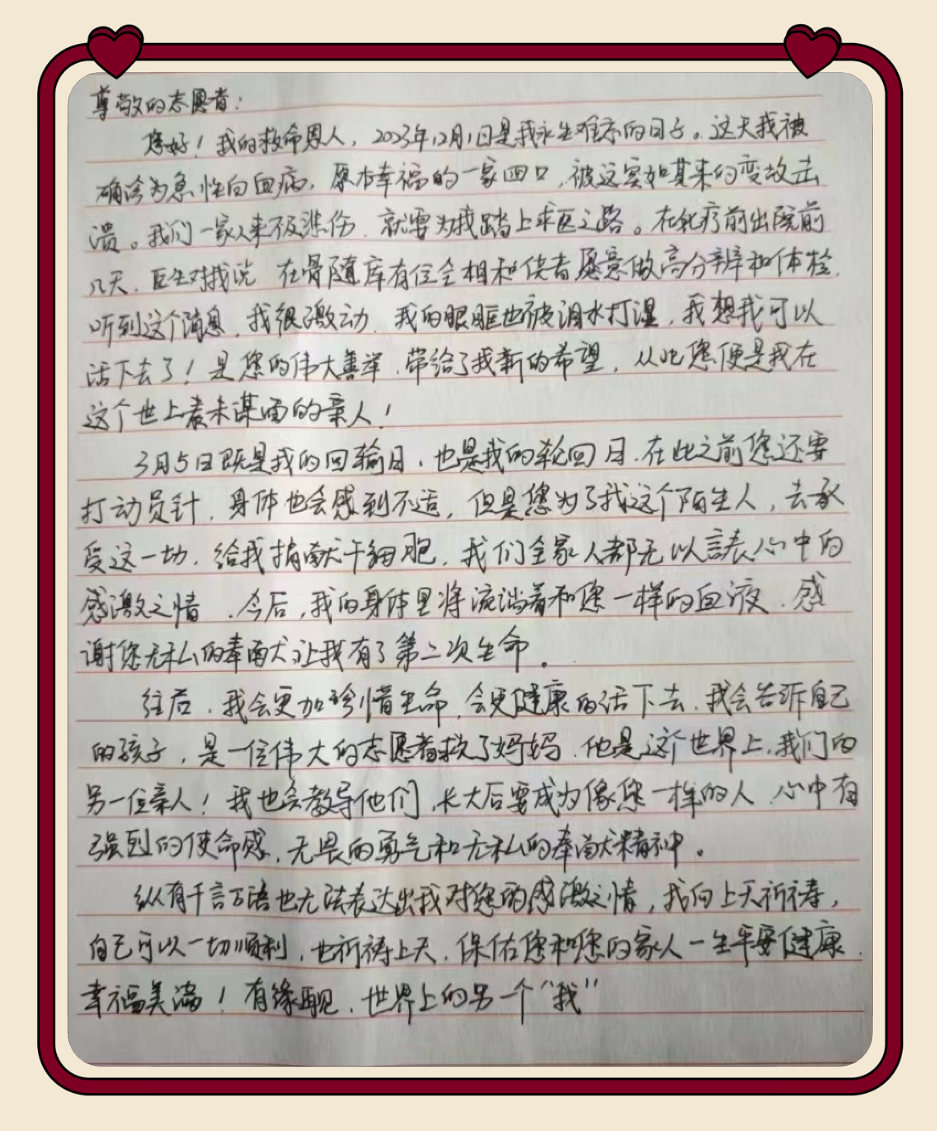 尊敬的志愿者：
您好！我的救命恩人，2023年12月1日是我永生难忘的日子。这天我被
确诊为急性白血病，原本幸福的一家四口，被这突如其来的变故击
溃。我们一家人来不及悲伤，就要为我踏上求医之路。在化疗前出院前
几天，医生对我说，在骨随库有位全相和供者愿意做高分辨和体检，
听到这个消息，我很激动，我的眼眶也被泪水打湿，我想我可以
活下去了！是您的伟大善举，带给了我新的希望，从此您便是我在
这个世上素未谋面的亲人！
3月5日既是我的回输日，也是我的轮回日，在此之前您还要
打动员针，身体也会感到不适，但是您为了我这个陌生人，去承
受这一切，给我捐献干细胞，我们全家人都无以言表心中的
感激之情，今后，我的身体里将流淌着和您一样的血液，感
谢您无私的奉献让我有了第二次生命。
往后，我会更加珍惜生命，会更健康的活下去，我会告诉自己
的孩子，是一位伟大的志愿者救了妈妈，他是这个世界上，我们的
另一位亲人！我也会教导他们，长大后要成为像您一样的人，心中有
强烈的使命感，无畏的勇气和无私的奉献精神。
纵有千言万语也无法表达出我对您的感激之情，我向上天祈祷，
自己可以一切顺利，也祈祷上天，保佑您和您的家人一生平安健康，
幸福美满！有缘再见，世界上的另一个“我”